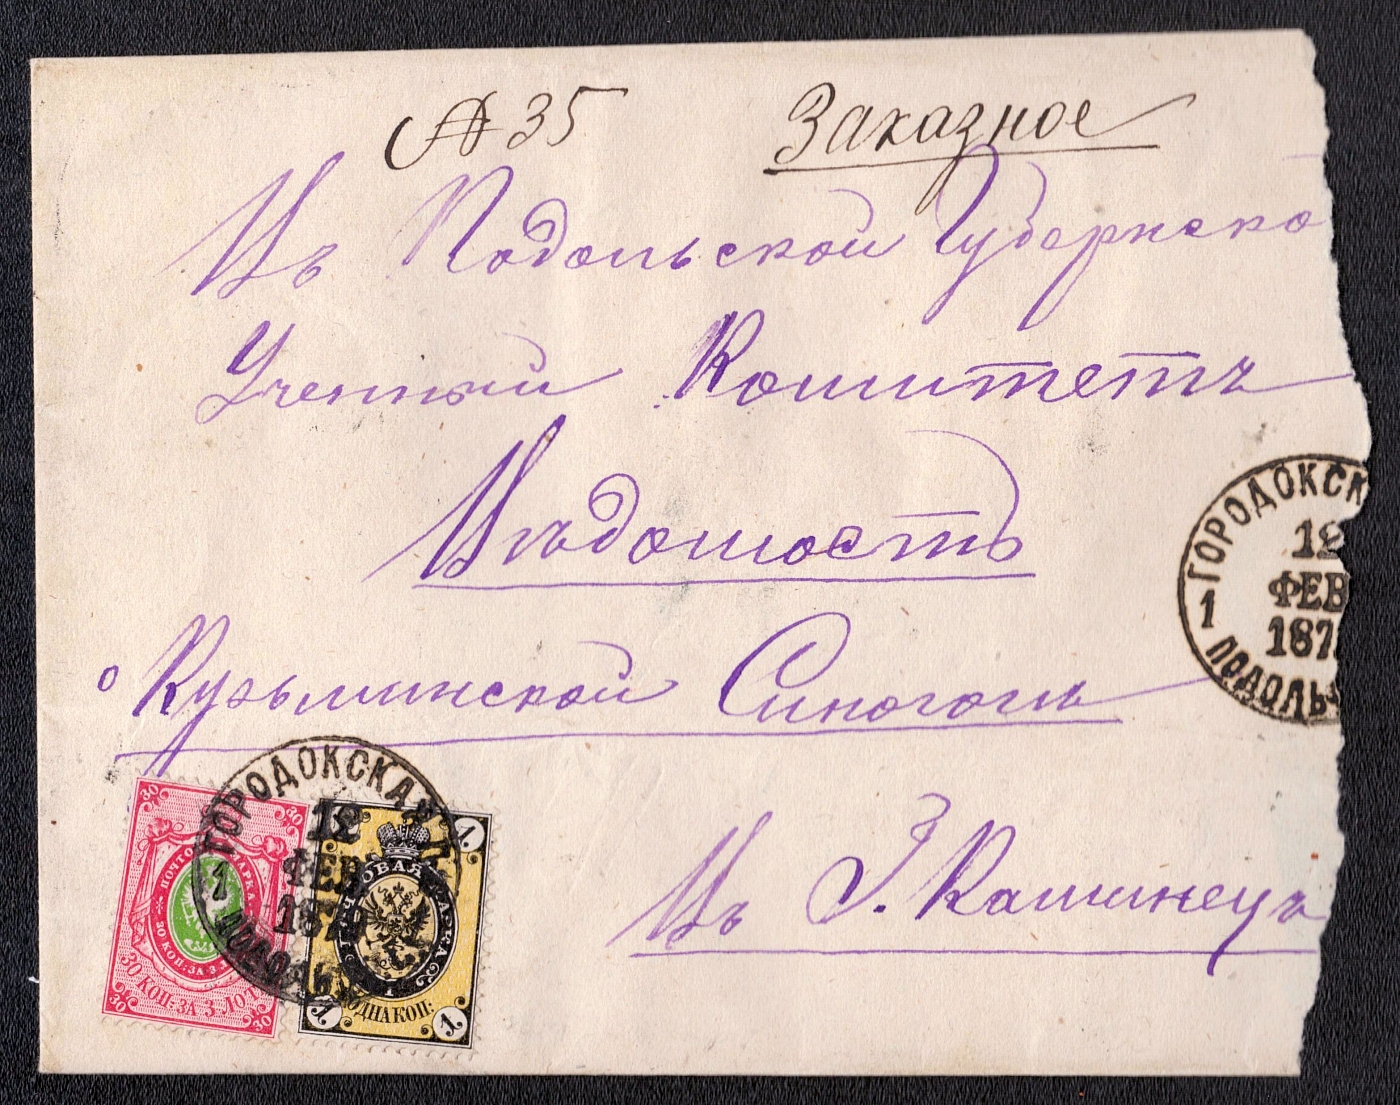 № 35 Заказное
Въ Подольской Губернско
Ученый Комитетъ
Вѣдомость
о Кузьминской Синогогѣ
Въ Г. Каминецъ
ГОРОДОКСК
12
ФЕВ
187
1
ПОДОЛЬ
ГОРОДОКСКАЯ
12
ФЕВ
187
1
30 30
30 КОП: ЗА 3 ЛОТ
30 30
1
ОДНА КОП:
1 1